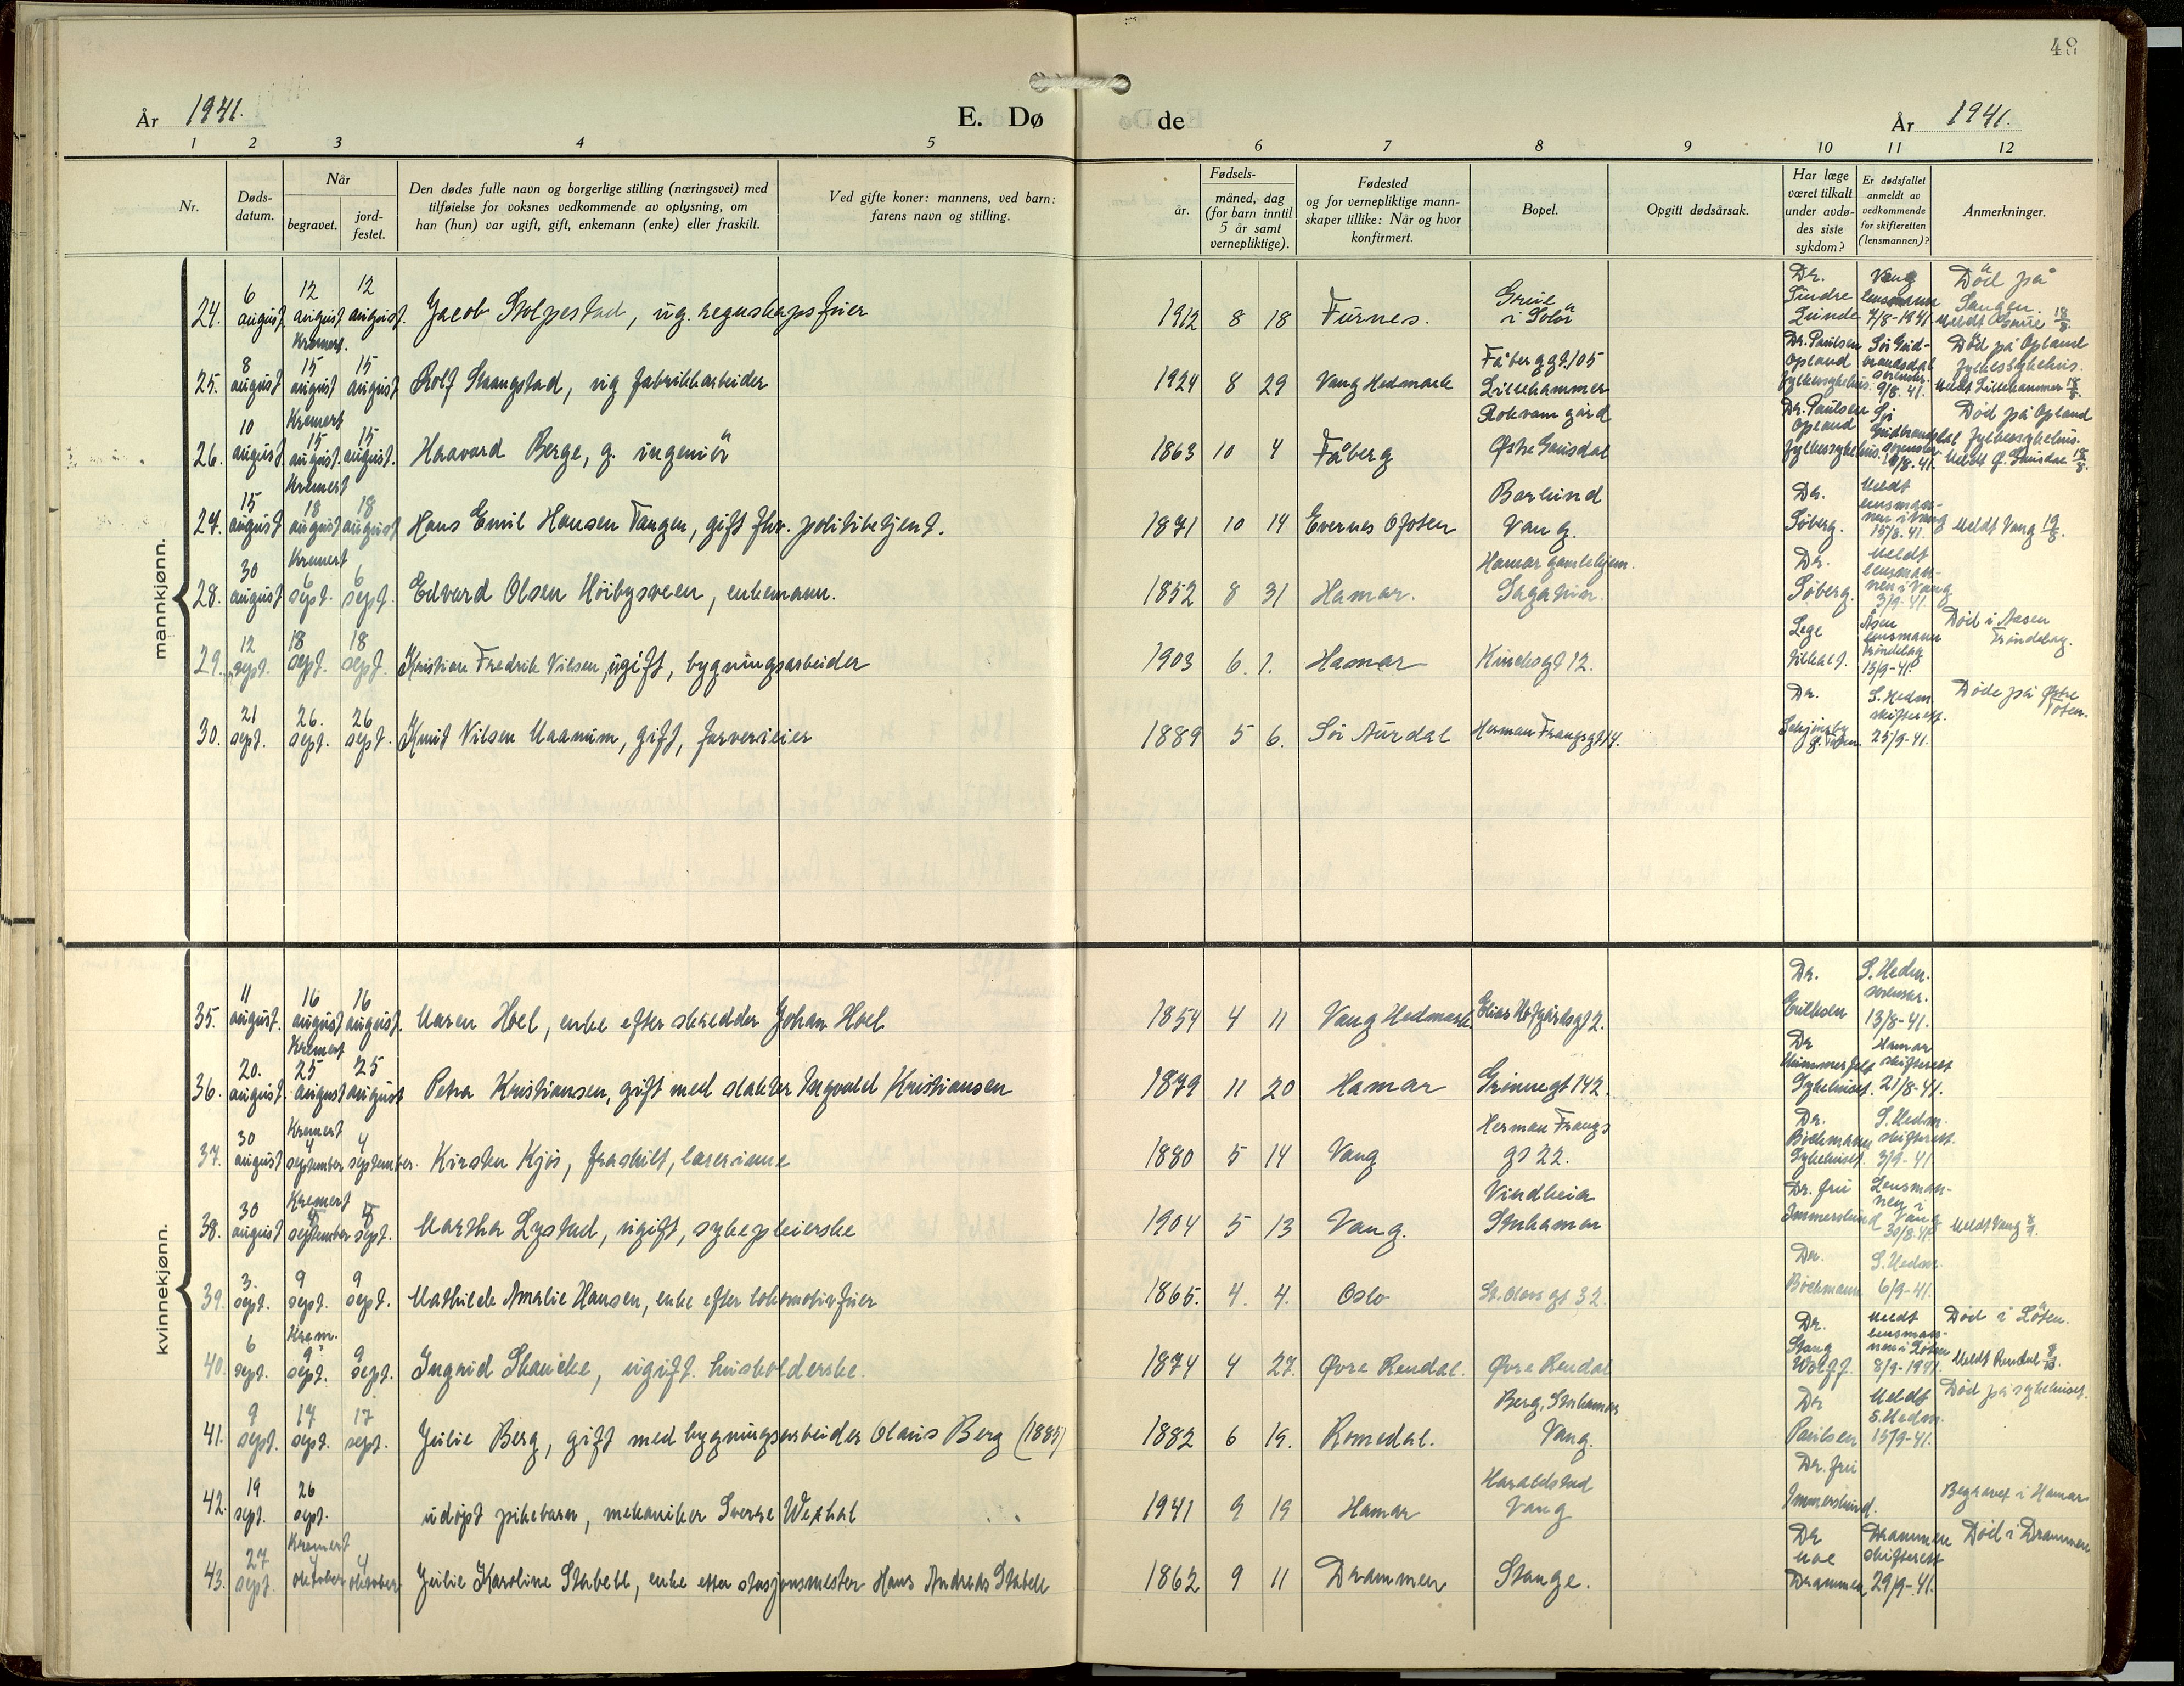 48
År 1941. E. Dø de År 1941.
1 2 3 4 5 6 7 8 9 10 11 12
Nr.
Døds-
datum.
Når
begravet.
jord-
festet.
Den dødes fulle navn og borgerlige stilling (næringsvei) med
tilføielse for voksnes vedkommende av oplysning, om
han (hun) var ugift, gift, enkemann (enke) eller fraskilt.
Ved gifte koner: mannens, ved barn:
farens navn og stilling.
Fødsels-
år.
måned, dag
(for barn inntil
5 år samt
vernepliktige).
Fødested
og for vernepliktige mann-
skaper tillike: Når og hvor
konfirmert.
Bopel.
Opgitt dødsårsak.
Har læge
været tilkalt
under avdø-
des siste
sykdom?
Er dødsfallet
anmeldt av
vedkommende
for skifteretten
(lensmannen)?
Anmerkninger.
mannkjønn.
24. 6 august 12 august Kremert. 12 august. Jacob Stolpestad, ug. regnskapsfører 1912 8 18 Furnes. Grue i Solør Dr. Sindre Lunde Vang lensmann 7/8-1941. Død på Meldt Grue 18/8.
25. 8 august 15 august Kremert 15 august Rolf Staangstad, ug fabrikkarbeider 1924 8 29 Vang Hedmark Fåberggt. 105 Lillehammer Dr. Paulsen Opland fylkessykehus. Sør Gud-brandsdal 9/8. 41. Død på Opland fylkessykehus. Meldt Lillehammer 18/8.
26. 10 august. 15 august. Kremert 15 august. Haavard Berge, g. ingeniør 1863 10 4 Fåberg Rokvam gård Østre Gausdal Dr. Paulsen Opland fylkessykehus. Sør Gudbrandsdal Død på Opland fylkessykehus. Meldt Ø. Gausdal 18/8.
27. 15 august 18 august Kremert 18 august Hans Emil Hansen Tangen, gift fhv. politibetjent. 1871 10 14 Evernes Ofoten Borlund Vang. Dr. Søberg. Meldt lensman-nen i Vang 15/8. 41. Meldt Vang 19/8.
28. 30 august 6 sept. 6 sept. Edvard Olsen Høibysveen, enkemann. 1852 8 31 Hamar. Hamar gamlehjem. Dr. Søberg. Meldt lensman-nen i Vang 3/9-41.
29. 12 sept. 18 sept. 18 sept. Kristian Fredrik Nilsen, ugift, bygningsarbeider 1903 6. 1. Hamar Kirkegt 12. Lege tilkalt. Åsen lensmann Trøndelag 13/9-41. Død i Aasen Trøndelag.
30. 21 sept. 26. sept. 26 sept. Knut Nilsen Maanum, gift, farverieier 1889 5 6. Sør Aurdal Herman Frangsgt 14. Dr. S. Hedm skifterett. 25/9-41. Døde på Østre Toten.
kvinnekjønn.
35. 11 august. 16 august Kremert 16 august. Maren Hoel, enke efter skredder Johan Hoel 1854 4 11 Vang Hedmark Elias Hofgårdsgt 2. Dr. Eriksen S. Hedm. sorenskr. 13/8-41.
36. 20. august. 25 august Kremert 25 august Petra Kristiansen, gift med slakter Ingvald Kristiansen 1879 11 20 Hamar Grønnegt 142. Dr Sykehuset. Hamar skifterett 21/8-41.
37. 30 august 4 september Kremert 4 september. Kirsten Kjøs, fraskilt, lærerinne 1880 5 14 Vang Herman Frangs gt 22. Dr. Bøckmann Sykehuset. S. Hedm. skifterett. 3/9-41
38. 30 august september sept. Martha Lystad, ugift, sykepleierske 1904 5 13 Vang. Vindheia Storhamar Dr. fru Immerslund Lensman-nen i Vang 30/8.41. Meldt Vang
39. 3. sept. 9 sept. Krem. 9 sept. Mathilde Amalie Hansen, enke efter lokomotivfører 1865. 4. 4. Oslo St. Olavs gt 32. Dr. Bøckmann S. Hedm. 6/9-41.
40. 6 sept. 9 sept. 9 sept. Ingrid Skancke, ugift. husholderske. 1874 4 27. Øvre Rendal. Øvre Rendal Dr. Stang Wolff. Meldt lensman-nen i Løten 8/9-1941. Død i Løten. Meldt Rendal
41. 9 sept. 17 sept. 17 sept. Julie Berg, gift med bygningsarbeider Olaus Berg (1885) 1882 6 19. Romedal. Berg, Storhamar Vang. Dr Paulsen Meldt S. Hedm. 15/9-41. Død på sykehuset.
42. 19 sept. 26 sept. udøpt pikebarn, mekaniker Sverre Wexhal 1941 9 19 Hamar Haraldstad Vang Dr. fru Immerslund. Begravet i Hamar
43. 27 sept. Kremert 4 oktober 4 oktober Julie Karoline Stabell, enke etter stasjonsmester Hans Andreas Stabell 1862 9 11 Drammen Stange. Dr Moe Drammen Drammen skifterett 29/9-41. Død i Drammen